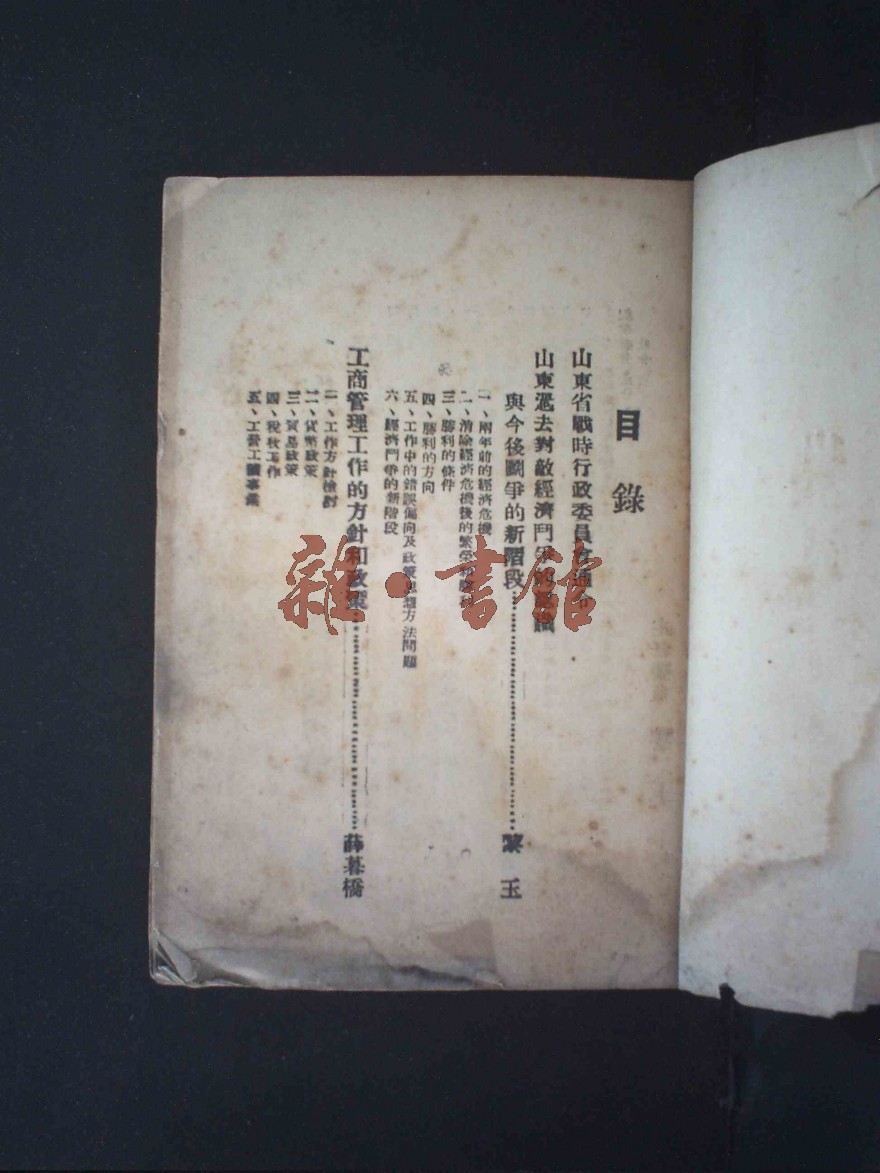 目錄
山東省戰時行政委員會通令
山東過去對敵經濟鬥爭的
與今後鬪爭的新階段 黎玉
一、兩年前的經濟危機
二、消除經濟危機後的繁榮
三、勝利的條件
四、勝利的方向
五、工作中的錯誤偏向及政策思想方法問題
六、經濟鬥爭的新階段
工商管理工作的方針和政策 薛暮橋
一、工作方針檢討
二、貨幣政策
三、貿易政策
四、稅收工作
五、工營工礦事業
雜·書館